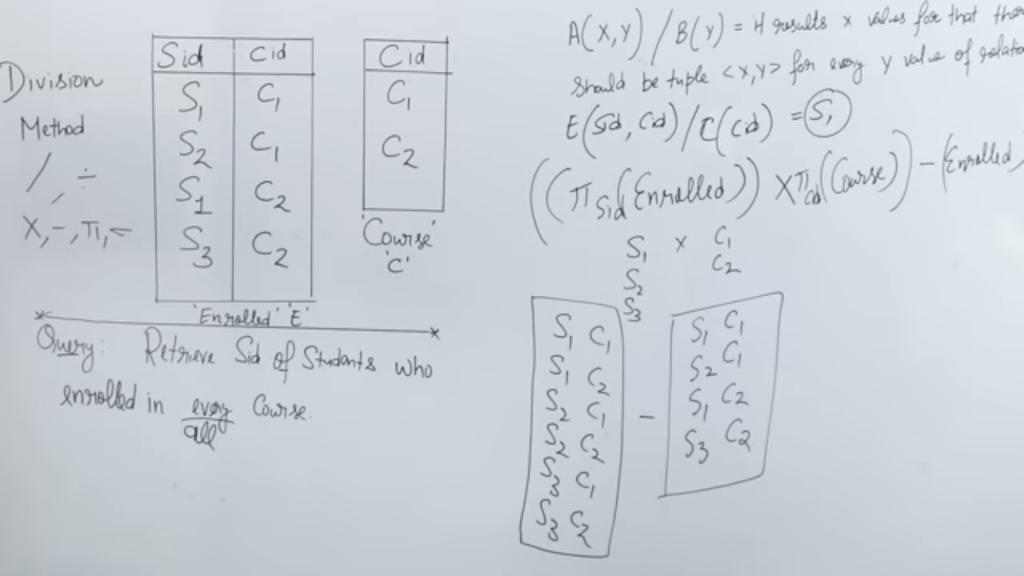 Division
Method
/, ÷
X, -, π, ←
Sid Cid
S1 C1
S2 C1
S1 C2
S3 C2
'Enrolled' 'E'
Cid
C1
C2
'Course'
'C'
Query: Retrieve Sid of Students who
enrolled in every Course.
all
A(X,Y) / B(Y) = It results x values for that
should be tuple <X,Y> for every y value of
E(Sid, Cid) / C(Cid) = S1
((π Sid (Enrolled)) X π Cid (Course)) - (Enrolled)
S1 x C1
S2 C2
S3
S1 C1
S1 C2
S2 C1
S2 C2
S3 C1
S3 C2
-
S1 C1
S2 C1
S1 C2
S3 C2